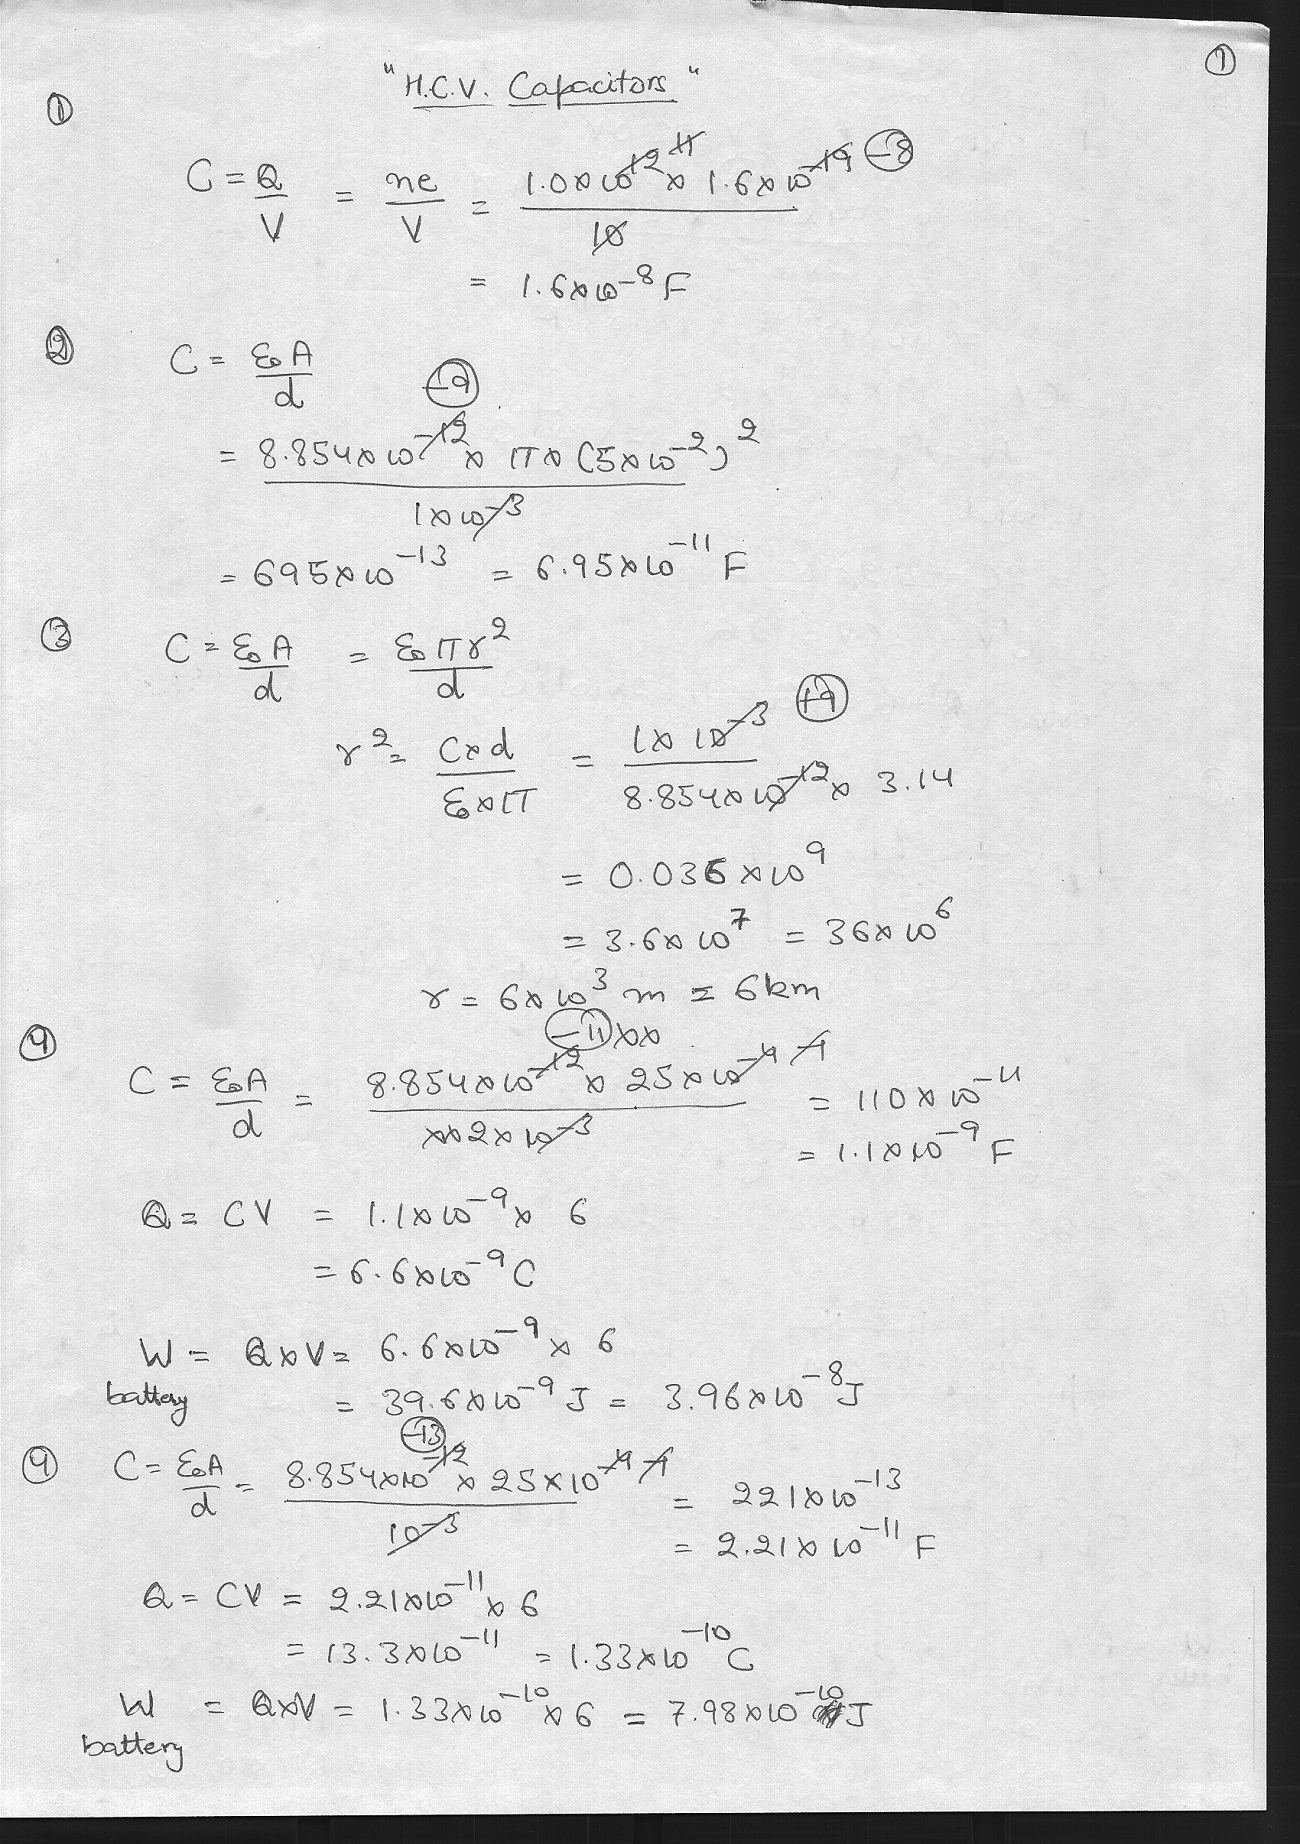 ①
"H.C.V. Capacitors"
① C = Q/V = ne/V = 1.0×10^12 11 × 1.6×10^-19 -8 / 10
= 1.6×10^-8 F
② C = ε₀A/d
-9
= 8.854×10^-12 × π × (5×10^-2)^2 / 1×10^-3
= 695×10^-13 = 6.95×10^-11 F
③ C = ε₀A/d = ε₀πr^2/d
r^2 = C×d/ε₀×π = 1×10^-3 / 8.854×10^-12 × 3.14 +9
= 0.036×10^9
= 3.6×10^7 = 36×10^6
r = 6×10^3 m = 6km
-11
④ C = ε₀A/d = 8.854×10^-12 × 25×10^-4 -1 / 2×10^-3 = 110×10^-11
= 1.1×10^-9 F
Q = CV = 1.1×10^-9 × 6
= 6.6×10^-9 C
W = Q×V = 6.6×10^-9 × 6
battery = 39.6×10^-9 J = 3.96×10^-8 J
-13
④ C = ε₀A/d = 8.854×10^-12 × 25×10^-4 -1 / 10^-3 = 221×10^-13
= 2.21×10^-11 F
Q = CV = 2.21×10^-11 × 6
= 13.3×10^-11 = 1.33×10^-10 C
W = Q×V = 1.33×10^-10 × 6 = 7.98×10^-10 J
battery